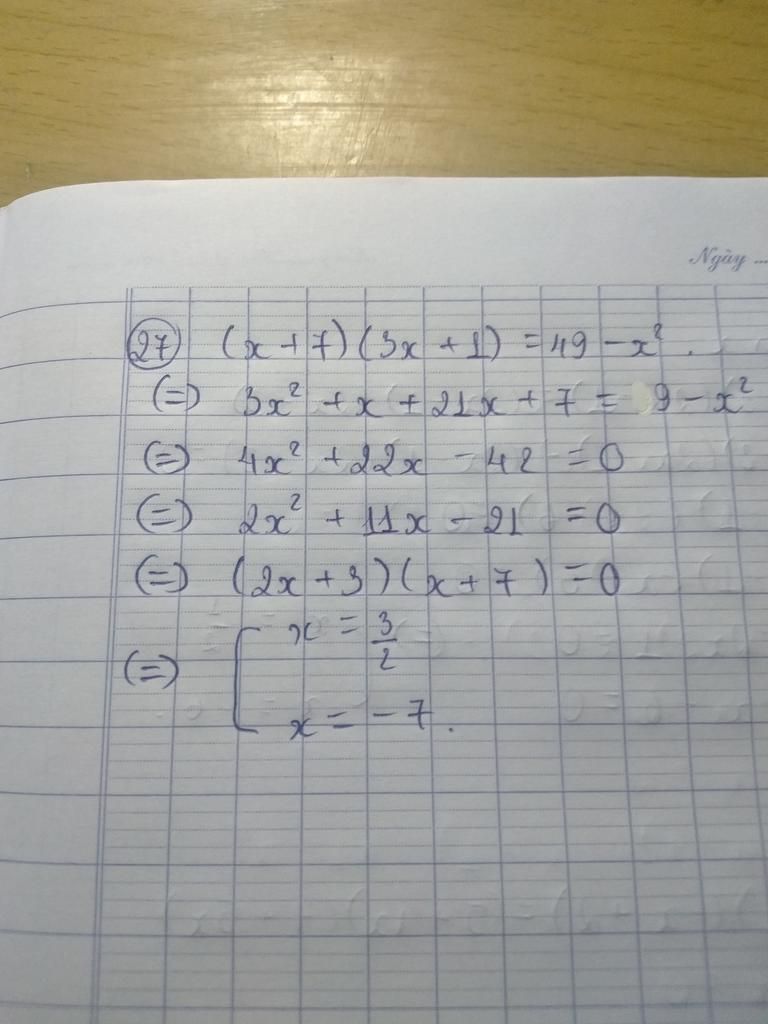 Ngày ...
27 (x + 7)(3x + 1) = 49 - x².
(=) 3x² + x + 21x + 7 = 9 - x²
(=) 4x² + 22x - 42 = 0
(=) 2x² + 11x - 21 = 0
(=) (2x + 3)(x + 7) = 0
(=) [ x = 3/2
x = -7.